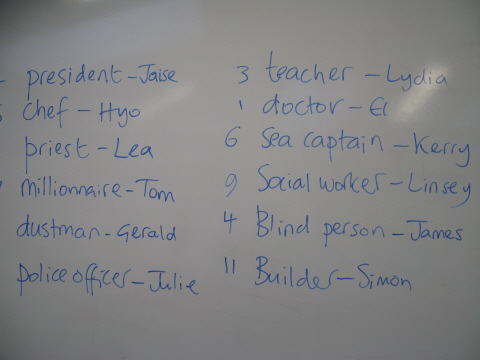 president - Jaise
chef - Hyo
priest - Lea
millionnaire - Tom
dustman - Gerald
police officer - Julie
3 teacher - Lydia
1 doctor - El
6 Sea captain - Kerry
9 Social worker - Linsey
4 Blind person - James
11 Builder - Simon